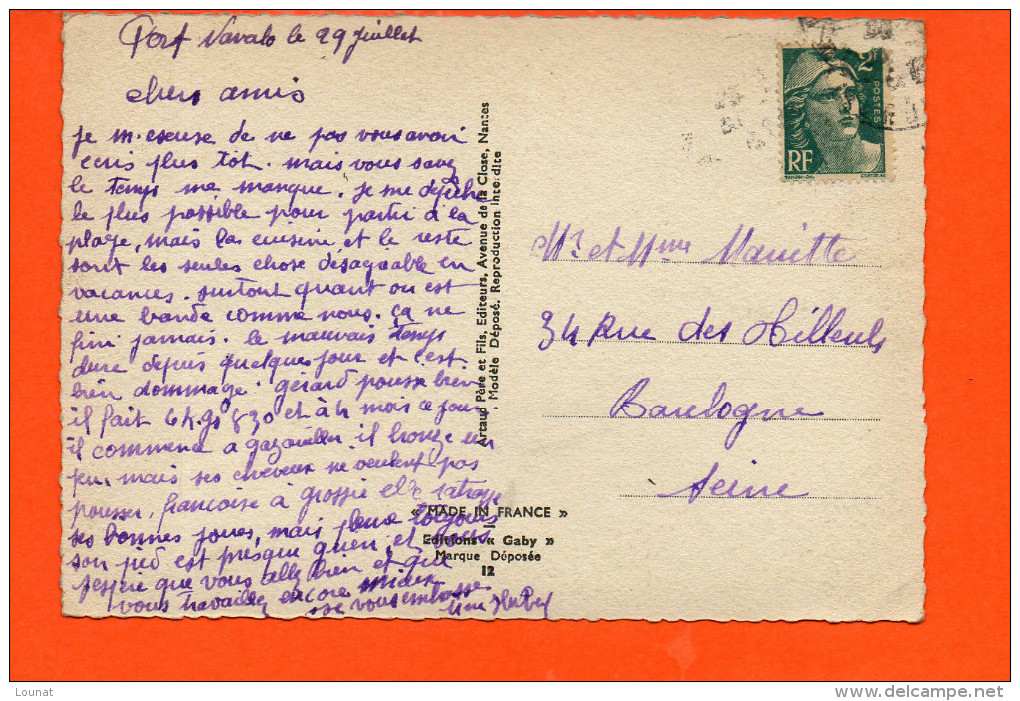 Port Navalo le 29 Juillet
chers amis
je m.escuse de ne pas vous avoir
ecris plus tôt. mais vous savez
le temps me manque. je me depêche
le plus possible pour partir à la
plage, mais la cuisine et le reste
sont les seules chose desagreable en
vacances. surtout quant on est
une bande comme nous. ça ne
fini jamais. le mauvais temps
dure depuis quelques jour et c'est
bien dommage. gérard pousse bien
il fait 6k.gr 830 et à 4 mois ce jour.
il commence a gazouiller il bronze un
peu, mais ses cheveux ne veulent pas
pousser, francoise à grossie elle ratrappe
ses bonnes joues, mais pleure toujours
son pied est presque gueri, et
j'espère que vous allez bien et que
vous travaillez encore mieux
je vous embrasse
Mme
Artaud Père et Fils, Editeurs, Avenue de la Close, Nantes
Modèle Déposé. Reproduction interdite
« MADE IN FRANCE »
Editions « Gaby »
Marque Déposée
12
2F
POSTES
RF
Mr et Mme Mariette
34 Rue des Tilleuls
Boulogne
Seine
Lounat
http://www.delcampe.net